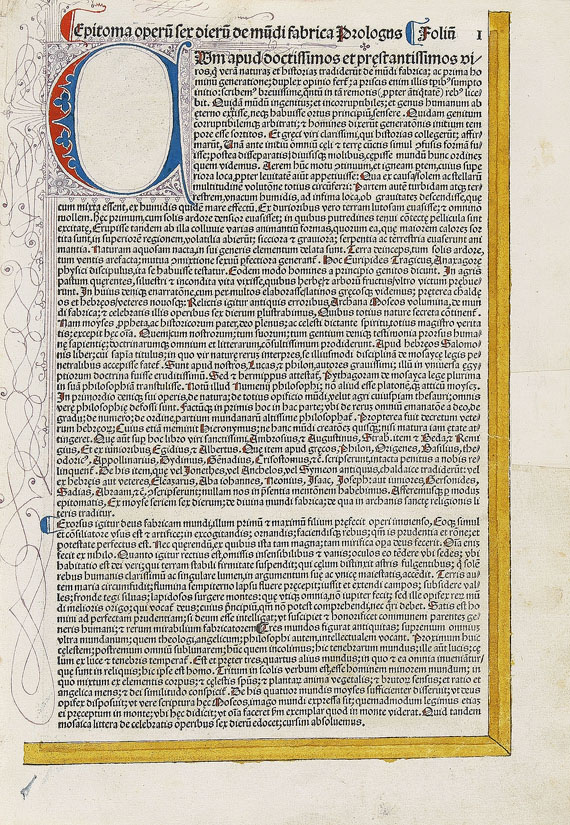 Epitoma operū sex dierū de mūdi fabrica Prologus Foliū I
Cum apud doctissimos et prestantissimos vi-
ros, q̄ verā naturā et historias tradiderūt de mūdi fabrica; ac prima ho
minū generatione; duplex opinio fert̄; a priscis enim illis tpib⁹ sumpto
initio: scribem⁹ breuissime, q̄ntū in tā remotis (,ppter ātiq̄tatē) reb⁹ lice-
bit. Quidā mūdū ingenitus; et incorruptibiles; et genus humanum ab
eterno extisse, neq; habuisse ortus principiū, sensere. Quidam genitum
corruptibilemq; arbitrati; et homines dixerūt generatōnis initium tem
pore esse sortitos. Et greci viri clarissimi, qui historias collegerūt; affir-
marūt, Unā ante initiū omniū celi et terre cūctis simul ,pfusis formā fu-
isse; postea disparatis diuisisq; molibus, cepisse mundū hunc ordinez
quem videmus. Aerem hūc motū ,ptinuū, et igneam ptem, cuius supe
riora loca ,ppter leuitatē aiūt appetiisse; Qua ex causa, solem ac stellarū
multitudinē volutōne totius circūferri; Partem autē turbidam atq; ter-
restrem, vnacum humidis, ad infima loca, ob grauitatē descendisse, que
cum mixta essent, ex humidis quidē mare effectū. Ex durioribus vero terram lutosam euasisse; et omnino
mollem. hec primum, cum solis ardore densior euasisset; in eius putredines tenui cōtecte pellicula sunt
excitate, Erupisse tandem ab illa colluuie varias animantiū formas, quorum ea, que maiorem calorez sor
tita sunt, in superiorē regionem, volatilia abierūt; sicciora & grauiora; serpentia ac terrestria euaserunt ani
mantia. Naturam aquosam nacta, in sui generis elementum delata sunt. Terra deinceps, tum solis ardore,
tum ventis arefacta; mutua ,pmixtione sexuū ,pfectiora generant̄. Hoc Euripides Tragicus, Anaxagore
physici discipulus, ita se habuisse testatur. Eodem modo homines a principio genitos dicunt. In agris
pastum querentes, siluestri & incondita vita vixisse, quibus herbe & arborū fructus vltro victum prebue-
runt. In huius deniq; enarratiōe, cum permultos elaborasse latinos grecosq; videmus; preterea chalde
os et hebreos veteres nouosq; Relictis igitur antiquis erroribus, Archana Moseos volumina, de mun
di fabrica; & celebratis illis operibus sex dierum plustrabimus, Quibus totius nature secreta cōtinent̄.
Nam moyses ,ppheta, ac historicorum pater, deo plenus; ac celesti dictante spiritu, totius magistro verita
tis; excepit hec oīa. Quemlcum nostrorum; tum suorum; tum gentium deniq; testimonia prorsus huma-
ne sapientie; doctrinarumq; omnium et litterarum, cōsultissimum prodiderunt. Apud hebreos Salomo-
nis liber; cui sapīa titulus; in quo vir nature rerum interpres, se illiusmodi disciplinā de mosayce legis pe-
netralibus accepisse fatet̄. Sunt apud nostros, Lucas, & philon, autores grauissimi; illū in vniuersa egy
ptiorum doctrina fuisse eruditissimū. Sed & hermippus attestat̄, Pythagoram de mosayca lege plurima
in suā philosophiā transtulisse. Notū illud Numenij philosophi; no aliud esse platonē, q̄ atticū moysez.
In primordio deniq; sui operis, de natura; de totius opificio mūdi, velut agri cuiuspiam thesauri; omnis
vere philosophie defossi sunt. Factūq; in primis hoc in hac parte; vbi de rerus omniū emanatōe a deo, de
gradu; de numero; de ordine, partium mundanarū altissime philosophat̄. Propterea fuit decretum vete-
rum hebreorū; Cuius etiā meminit Hieronymus; ne hanc mūdi creatōez quisq; nisi matura iam etate at-
tingeret. Que aūt sup hoc libro viri sanctissimi, Ambrosius, & Augustinus, Strab. item & Beda; & Remi
gius, Et ex iunioribus, Egidius & Albertus. Que item apud grecos, Philon, Origenes, Basilius, the-
odoric⁹, Appollinarius, Dydimus, Gēnadius, Crisostonus; &c. scripserunt, intacta penitus a nobis re-
linquent̄. De his item, que vel Jonethes, vel Anchelos, vel Symeon antiquus, chaldaice tradiderūt; vel
ex hebreis aut veteres, Eleazarus, Aba iohannes, Neonius, Isaac, Josephr aut iuniores Gersonides,
Sadias, Abraam, & c̄, scripserunt; nullam nos in p̄sentia mentōnem habebimus. Afferemusq; p modūz
epitomatis, Ex moyse seriem sex dierum; de diuina mundi fabrica; de qua in archanis sancte religionis li
teris traditur.
Exorsus igitur deus fabricam mundi, illum primū & maximū filium prefecit operi immenso, Eoq; simul
et cōsiliatore vsus est & artifice; in excogitandis, ornandis; faciendisq; rebus; qm is prudentia et rōne; et
potestate perfectus est. Nec querendū, ex quibus ista tam magna; tam mirifica opa deus fecerit. Oīa eniz
fecit ex nihilo. Quanto igit̄ rectus est, omissis insensibilibus & vanis; oculos eo tēdere vbi sedes; vbi
habitatio est dei veri; qui terram stabili firmitate suspendit; qui celum distinxit astris fulgentibus; q̄ solē
rebus humanis clarissimū ac singulare lumen, in argumentum sue ac vnice maiestatis, accēdit. Terris au
tem maria circūfudit; flumina sempiterno lapsu fluere precepit; iussit et extendi campos; subsidere val-
les; fronde tegi siluas; lapidosos surgere montes: que vtiq; omnia, nō iupiter fecit; sed ille opifex rerū mū
di melioris origo; qui vocat̄ deus; cuius p̄ncipiū, qm nō potest comprehendi, nec q̄ri debet. Satis est ho
mini ad perfectam prudentiam; si deum esse intelligat; vt suspiciat & honorificet communem parentez ge-
neris humani; & rerum mirabilium fabricatorem. Tres mundos figurat antiquitas; supremum omniuz
vltra mundanum; quem theologi, angelicum; philosophi autem, intellectualem vocant. Proximum huic
celestem; postremum omniū sublunarem; hūc quem incolimus; hic tenebrarum mundus; ille aūt lucis; ce
lum ex luce & tenebris temperat̄. Est et preter tres, quartus alius mundus; in quo & ea omnia inueniātur
que sunt in reliquis; hic ipse est homo. Tritum in scolis verbum est; esse hominem minorem mundum; in
quo mixtum ex elementis corpus; & celestis spūs; & plantarū anima vegetalis; & brutorū sensus; et ratio et
angelica mens; & dei similitudo conspicit̄. De his quatuor mundis moyses sufficienter disseruit; vt deus
opifex disposuit; vt vere scriptura hec Moseos, imago mundi expressa sit; quemadmodum legimus etiaz
ei preceptum in monte; vbi hec didicit; vt oīa faceret ,pm exemplar quod in monte viderat. Quid tandem
mosaica littera de celebratis operibus sex dierū edocet; cursim absoluemus.